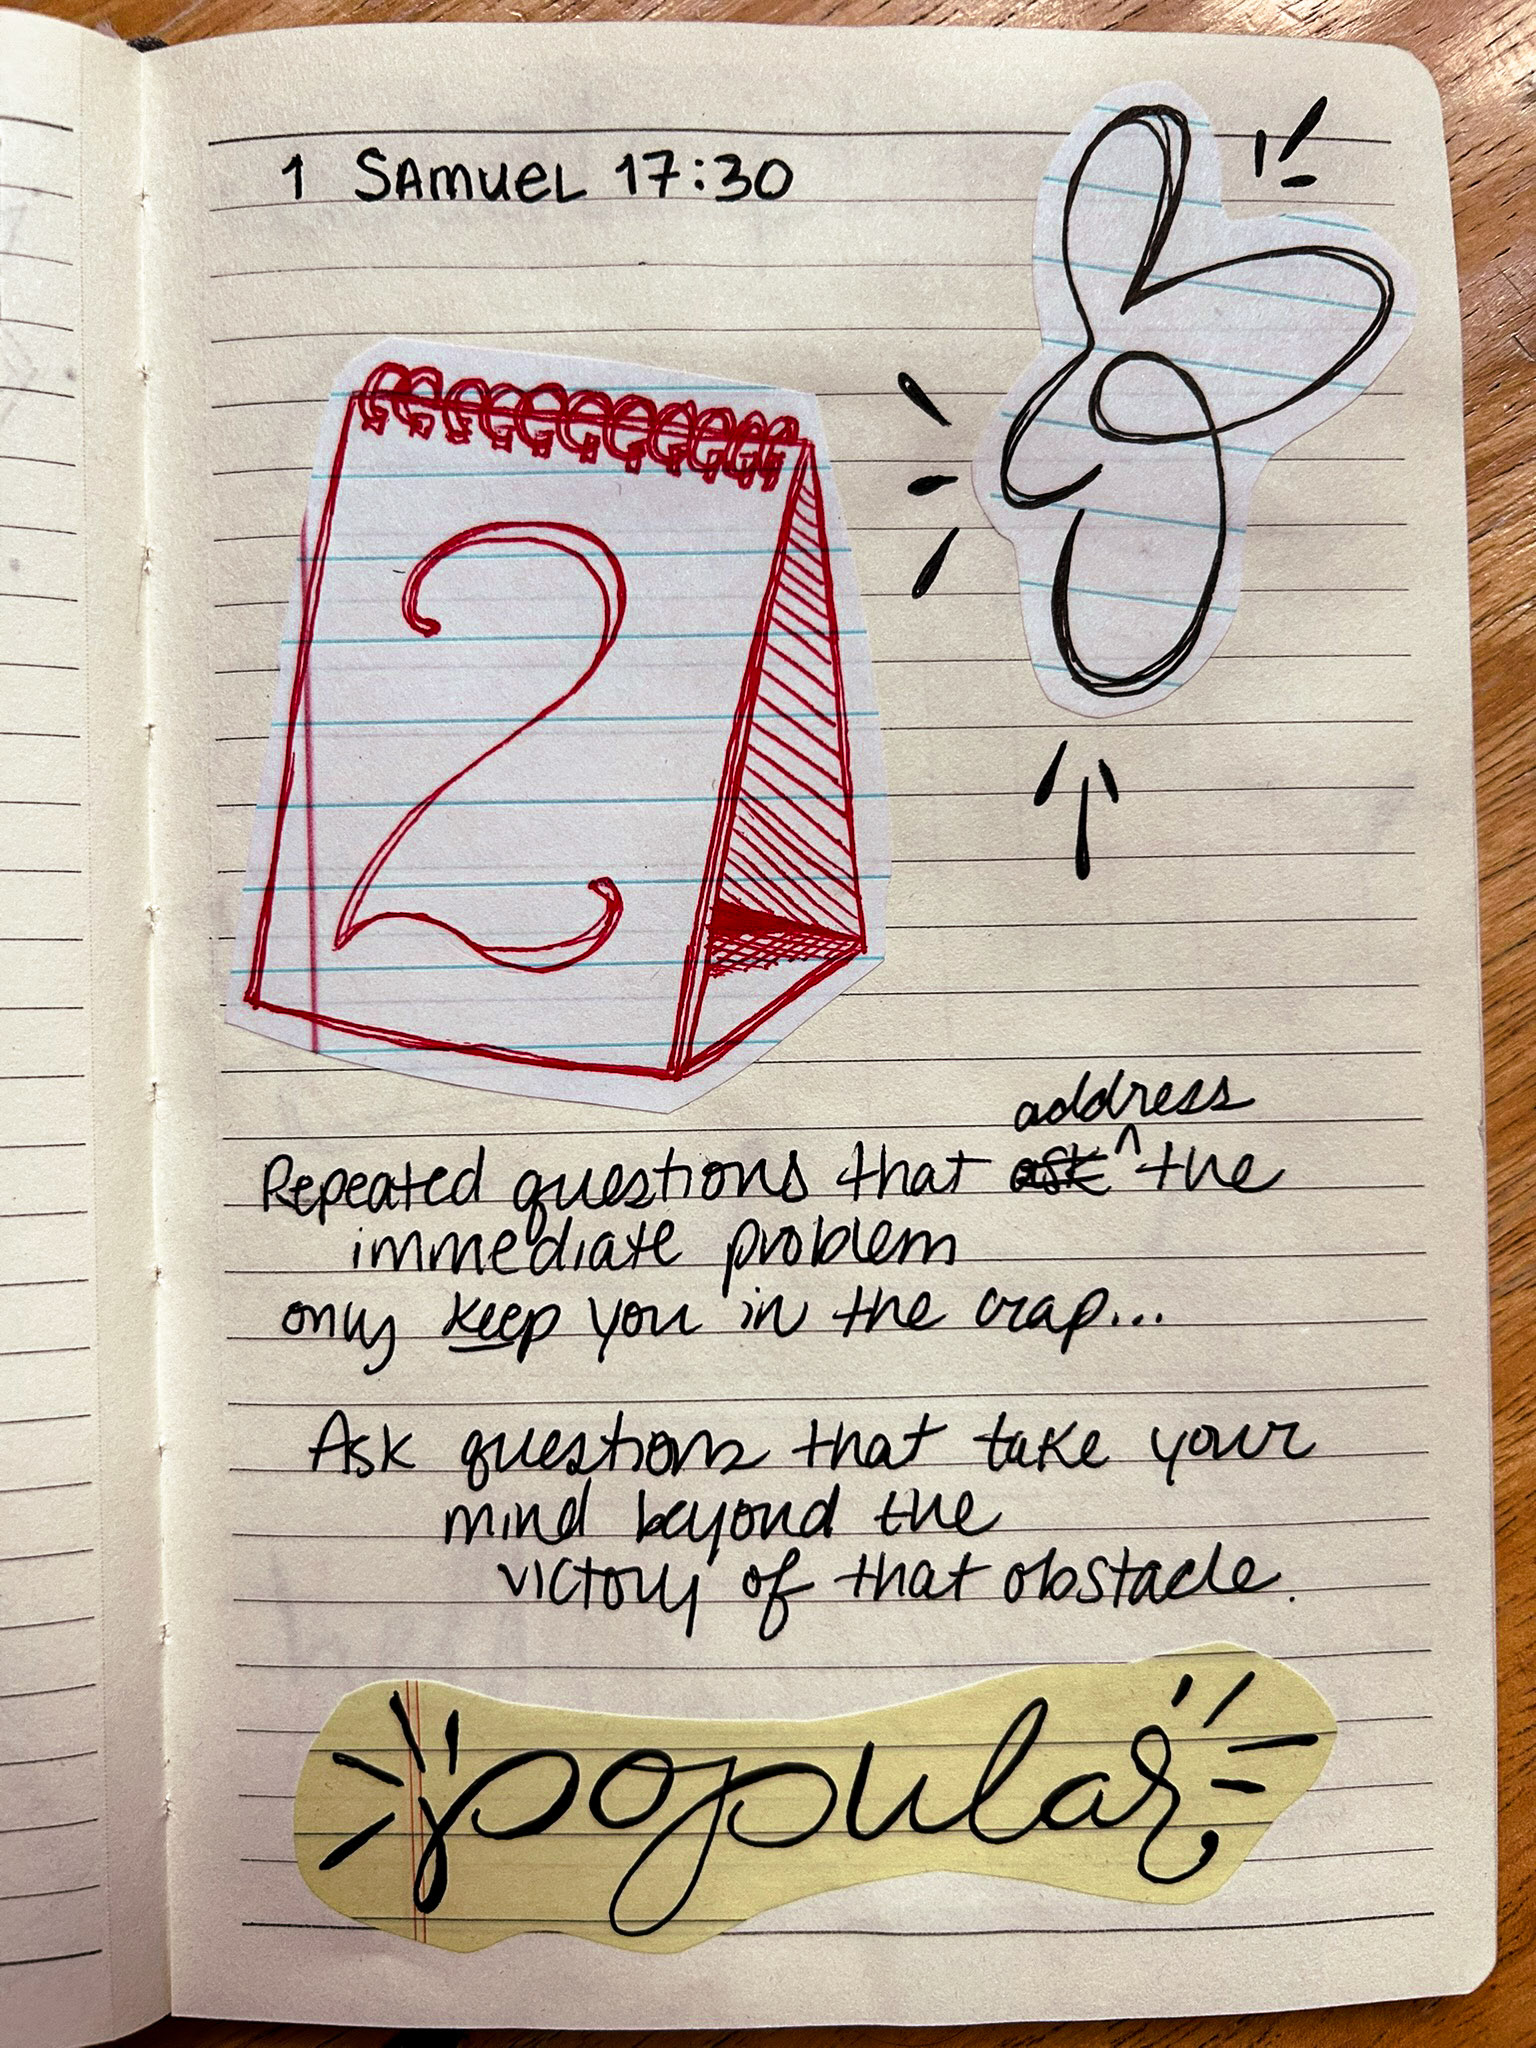 1 SAMUEL 17:30
2
address
Repeated questions that ask ^ the
immediate problem
only keep you in the crap...
Ask questions that take your
mind beyond the
victory of that obstacle.
popular